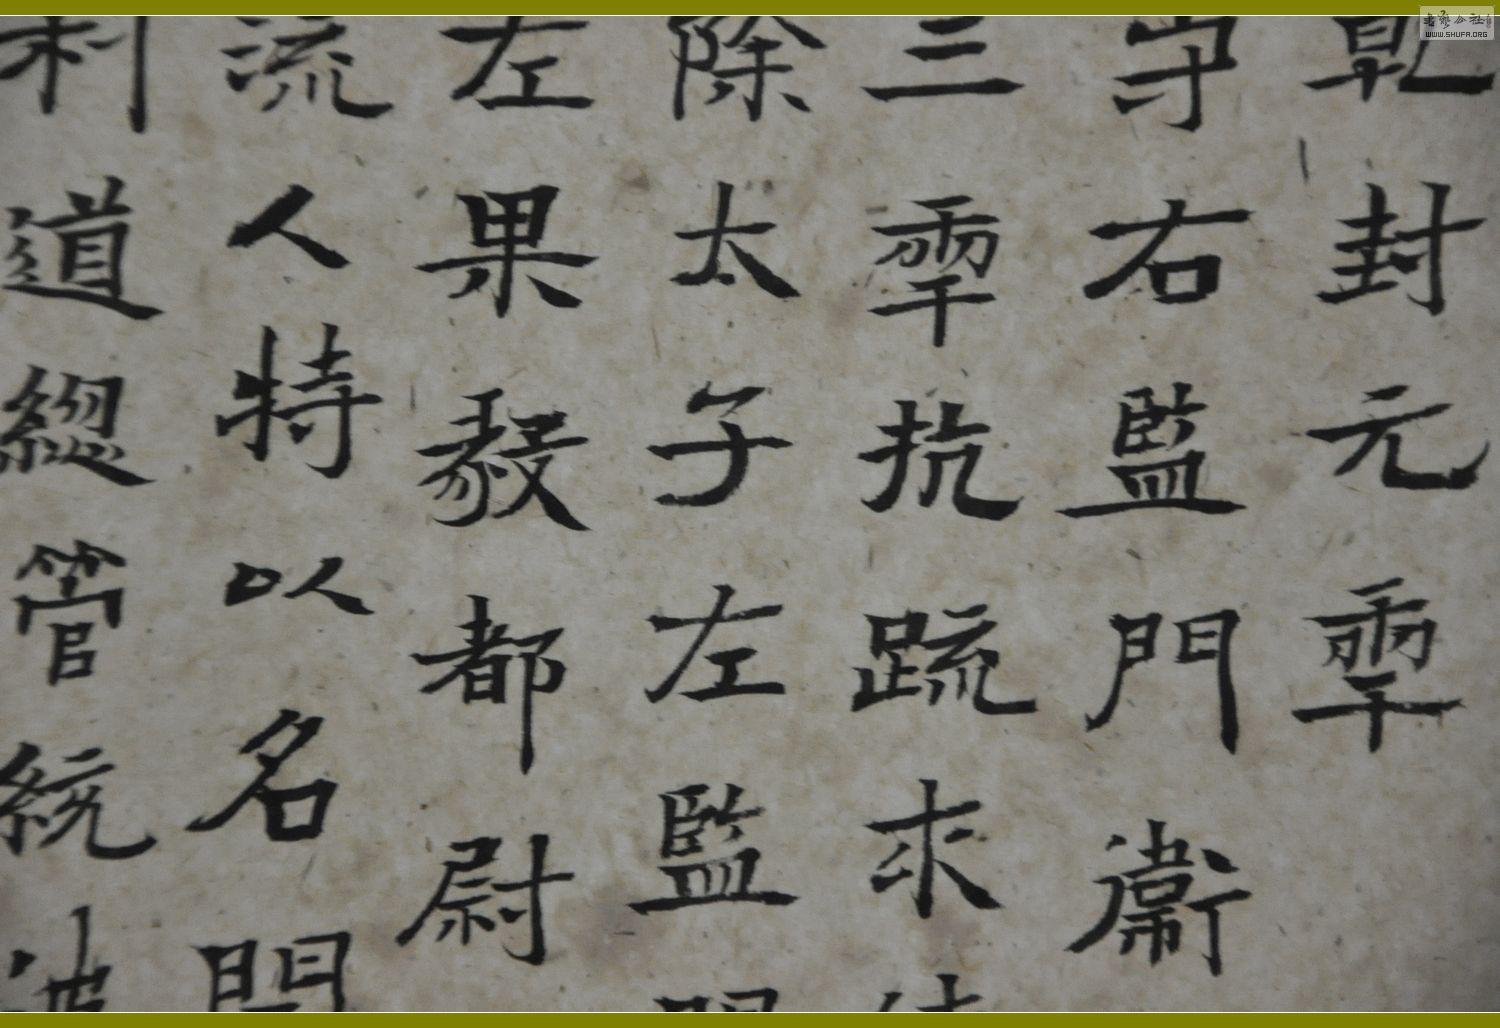 乾封元𠡦
守右監門衞
三𠡦抗䟽求
除太子左監門
左果毅都尉
流人特以名聞
利道緫管統
书艺公社
WWW.SHUFA.ORG